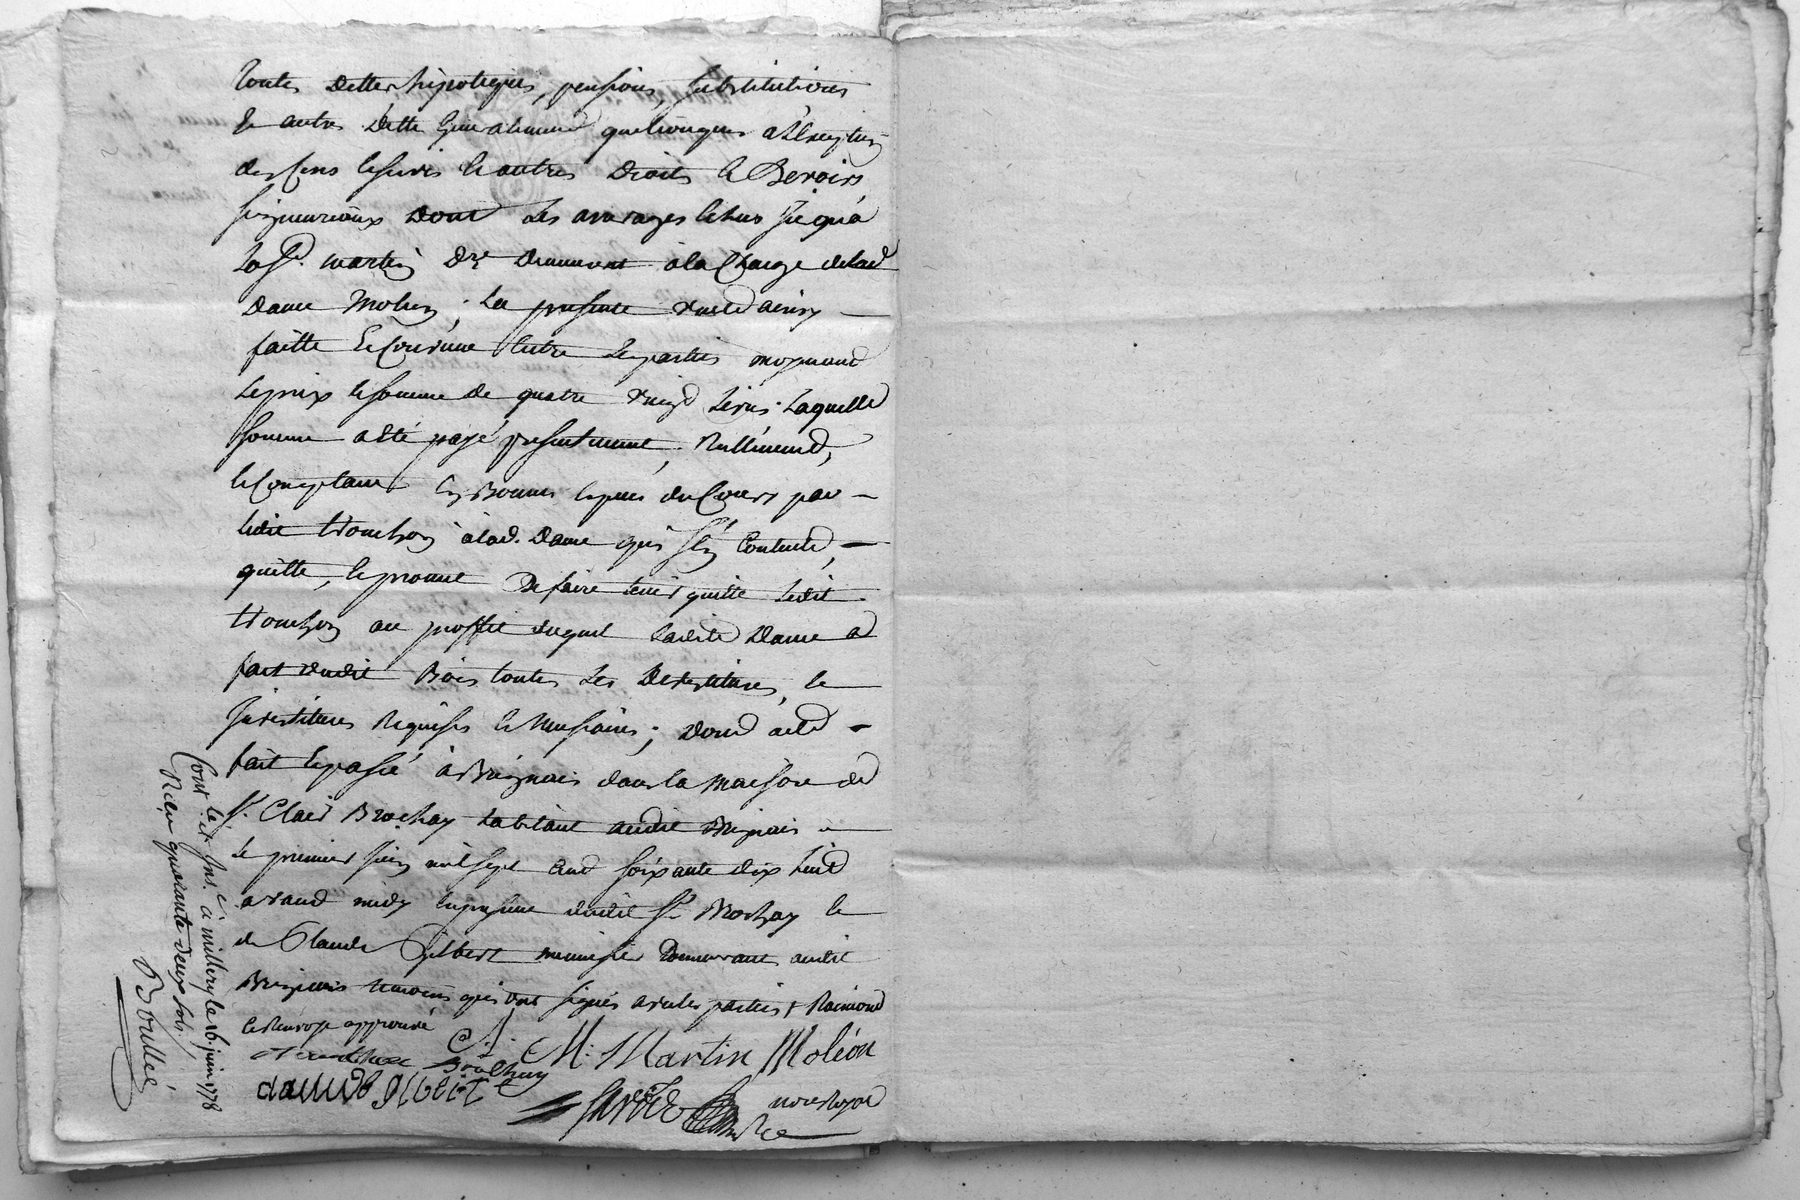 toutes dettes hipoteques, pensions, substitutions
et autres dette generalement quelconques a l'exeption
des Cens et servis et autres Droits et Devoirs
seigneuriaux dont les arrerages echus jusqu'a
la st. martin dre demeurent a la charge de lad
Dame Moleon; La presente vente ainsy
faitte et Convenue entre les parties moyennant
le prix et somme de quatre vingt livres. Laquelle
somme a été payé presentement, réellement,
et Comptant en Bonnes especes du Cours par
ledit trouchon à lad. Dame qui s'en Contente,
quitte, et promet De faire tenir quitte ledit
trouchon au proffit duquel ladite Dame a
fait dudit Bois toutes Les Devestitures, et
Investitures Requises et necessaires; dont acte
fait et passé à Brignais dans la maison de
sr. Clair Brochay habitant audit Brignais
le premier juin mil sept cent soixante dix huit
avant midy en presence dudit sr Brochay et
de Claude Gilbert menuisier Demeurant audit
Brignais temoins qui ont signés avec les parties + Raimond
et Renvoye approuvé
M. Martin Moléon
Brochay
claude gilbert
nore Royal
Cont. lé et Ins. é à millery le 16 juin 1778
Reçu quarante deux sols
Boullée